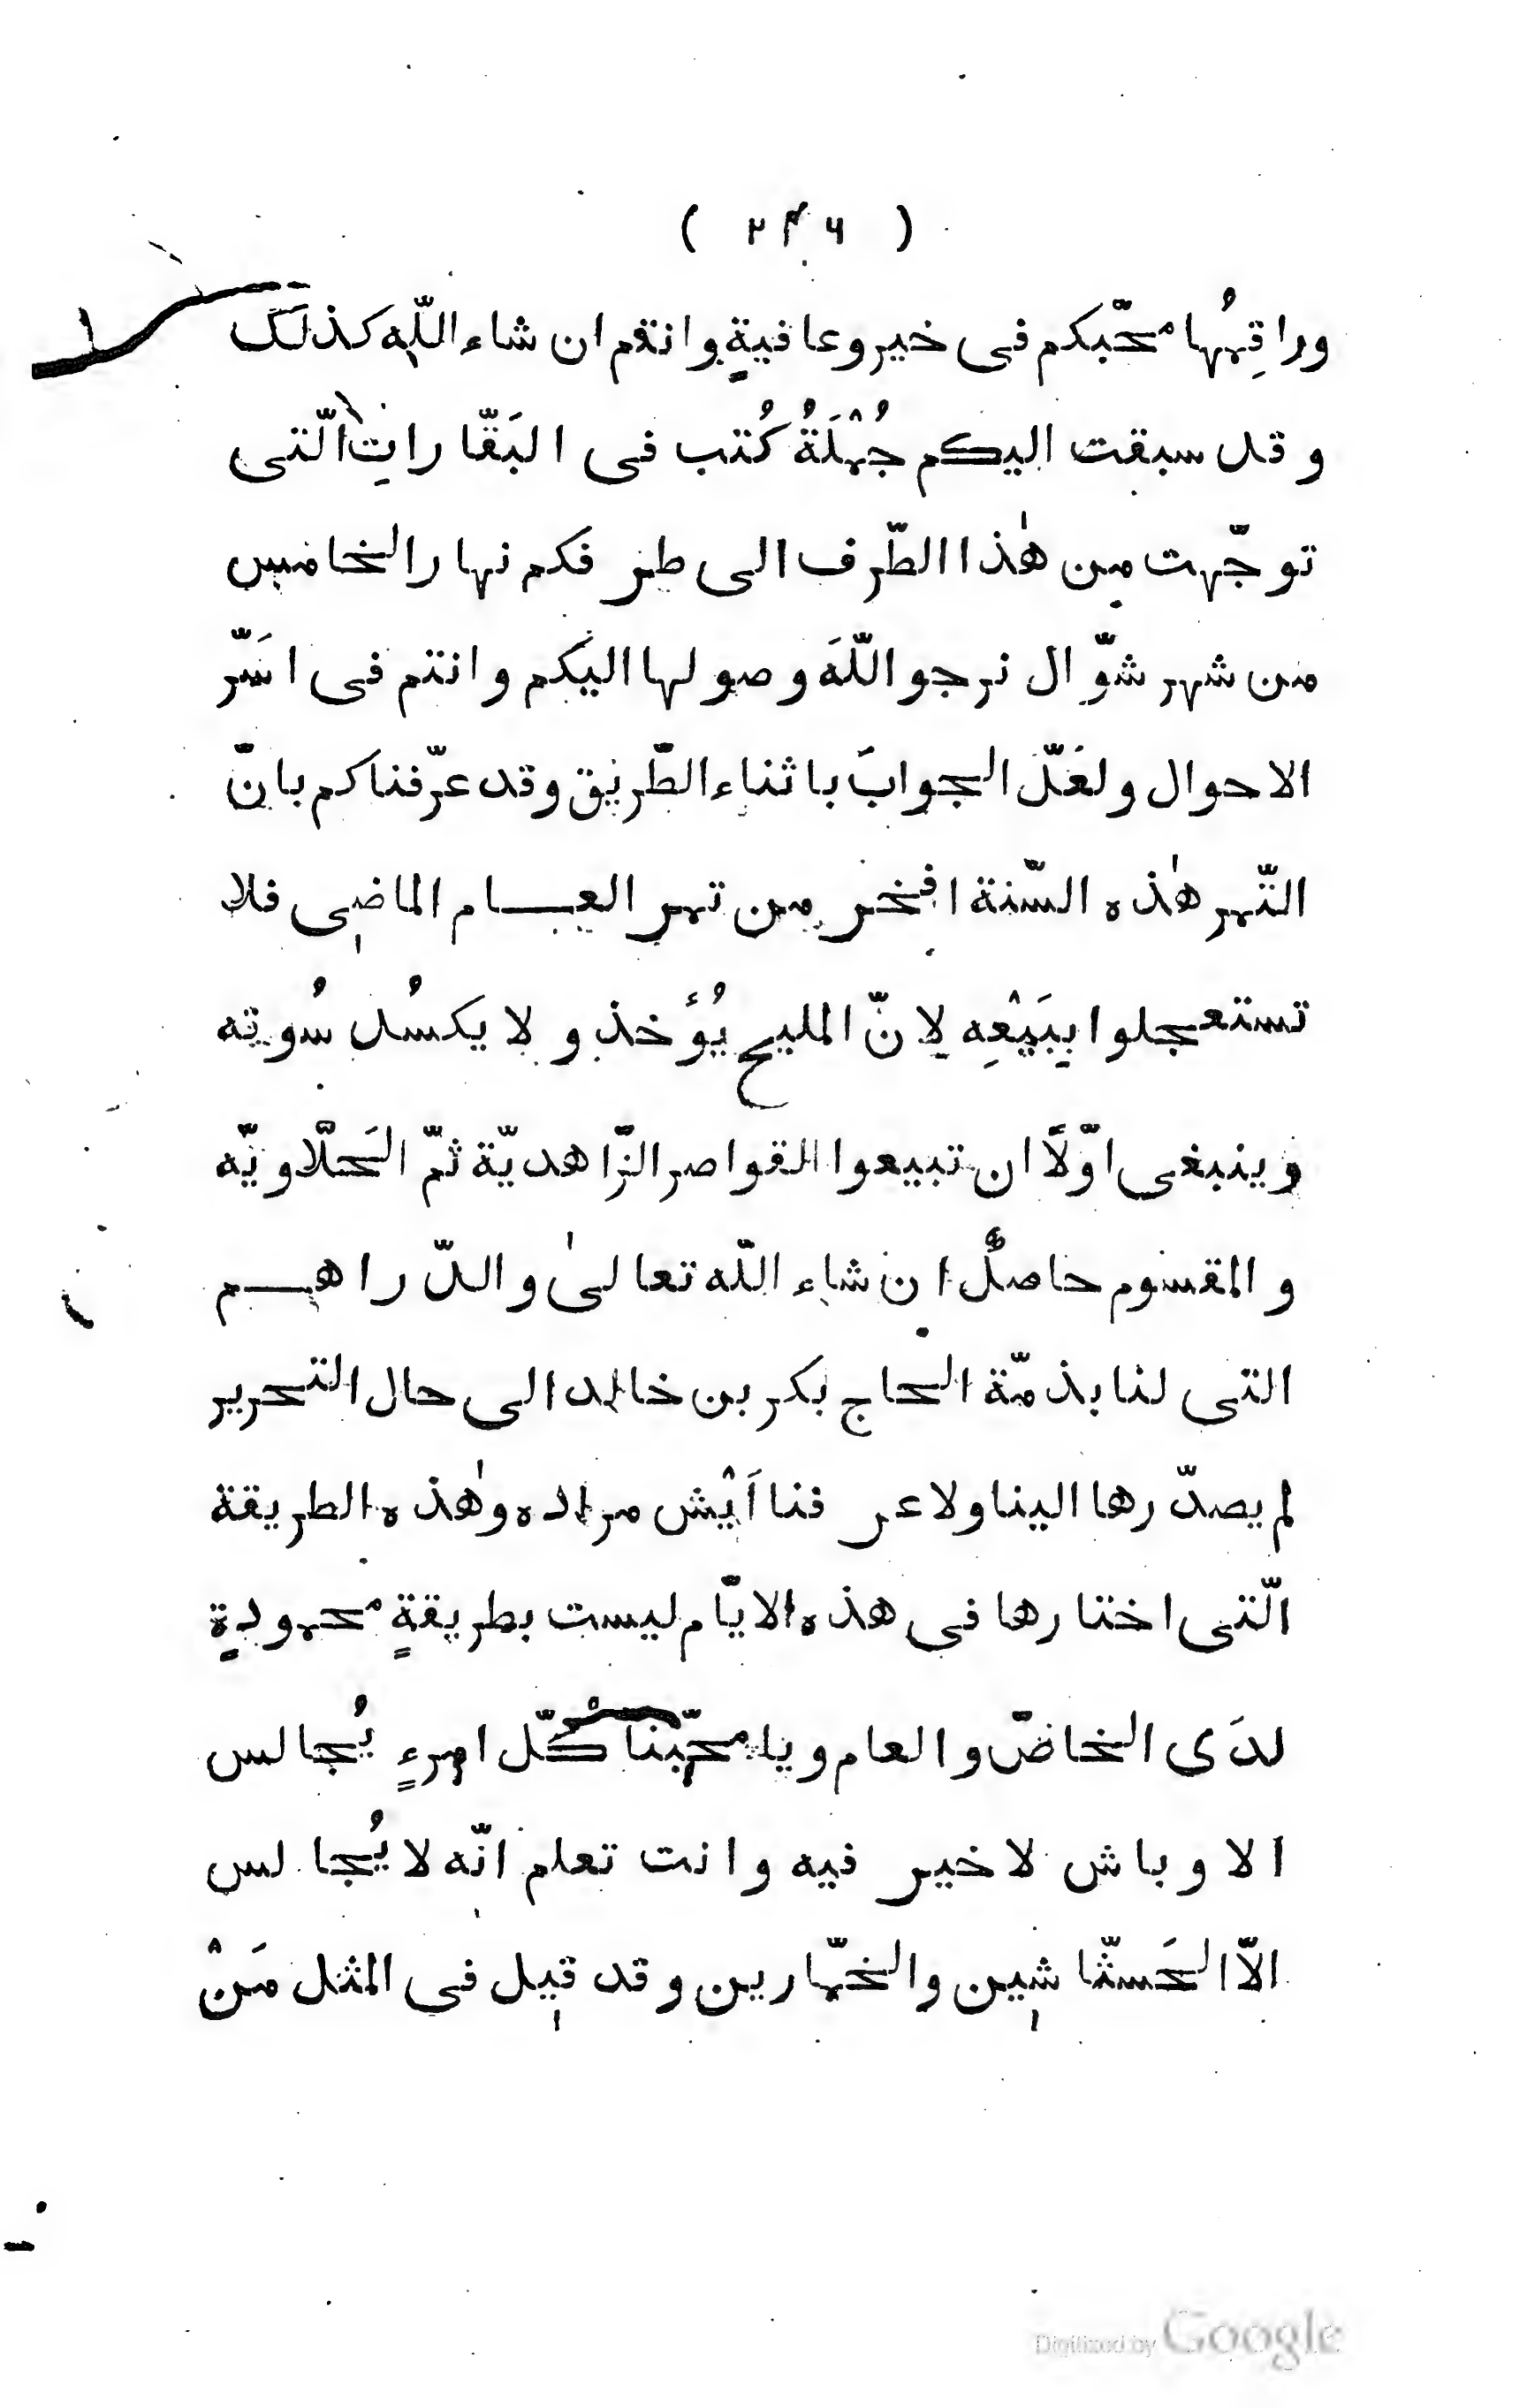 ( ۲۴۶ )
وراقِمُها محّبكم فى خير وعافيةٍ وانتم ان شاء اللّه كذلك
وقد سبقت اليكم جُمْلَةُ كُتب فى البَقّاراتِ الّتى
توجّهت من هٰذا الطّرف الى طرفكم نهار الخامس
من شهر شوّال نرجو اللّهَ وصولها اليكم وانتم فى اسَّر
الاحوال ولعَلّ الجوابَ باثناء الطّريق وقد عرّفناكم بانّ
التّمر هٰذه السّنة افخر من تمر العام الماضى فلا
تستعجلوا ببَيْعِه لانّ المليح يُؤَخذ ولا يكسُد سُوقه
وينبغى اوّلًا ان تبيعوا القواصر الزّاهديّة ثمّ الحَلّاويّه
والمقسوم حاصلٌ ان شاء اللّه تعالىٰ والدّراهم
التى لنا بذمّة الحاج بكر بن خالد الى حال التحرير
لم يصدّرها الينا ولا عرفنا اَيْش مراده وهٰذه الطريقة
الّتى اختارها فى هذه الايّام ليست بطريقةٍ محمودةٍ
لدَى الخاصّ والعام ويا محّبنا كُلّ امرءٍ يُجالس
الاوباش لاخير فيه وانت تعلم انّه لا يُجالس
الّا الحَشّاشين والخمّارين وقد قيل فى المثل مَنْ
Digitized by Google